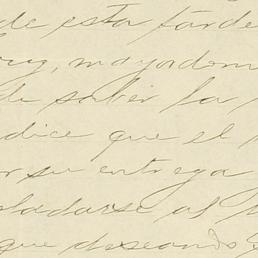 de esta tarde
mayordom
de saber la
dice que el
or su entrega
al
que deseando